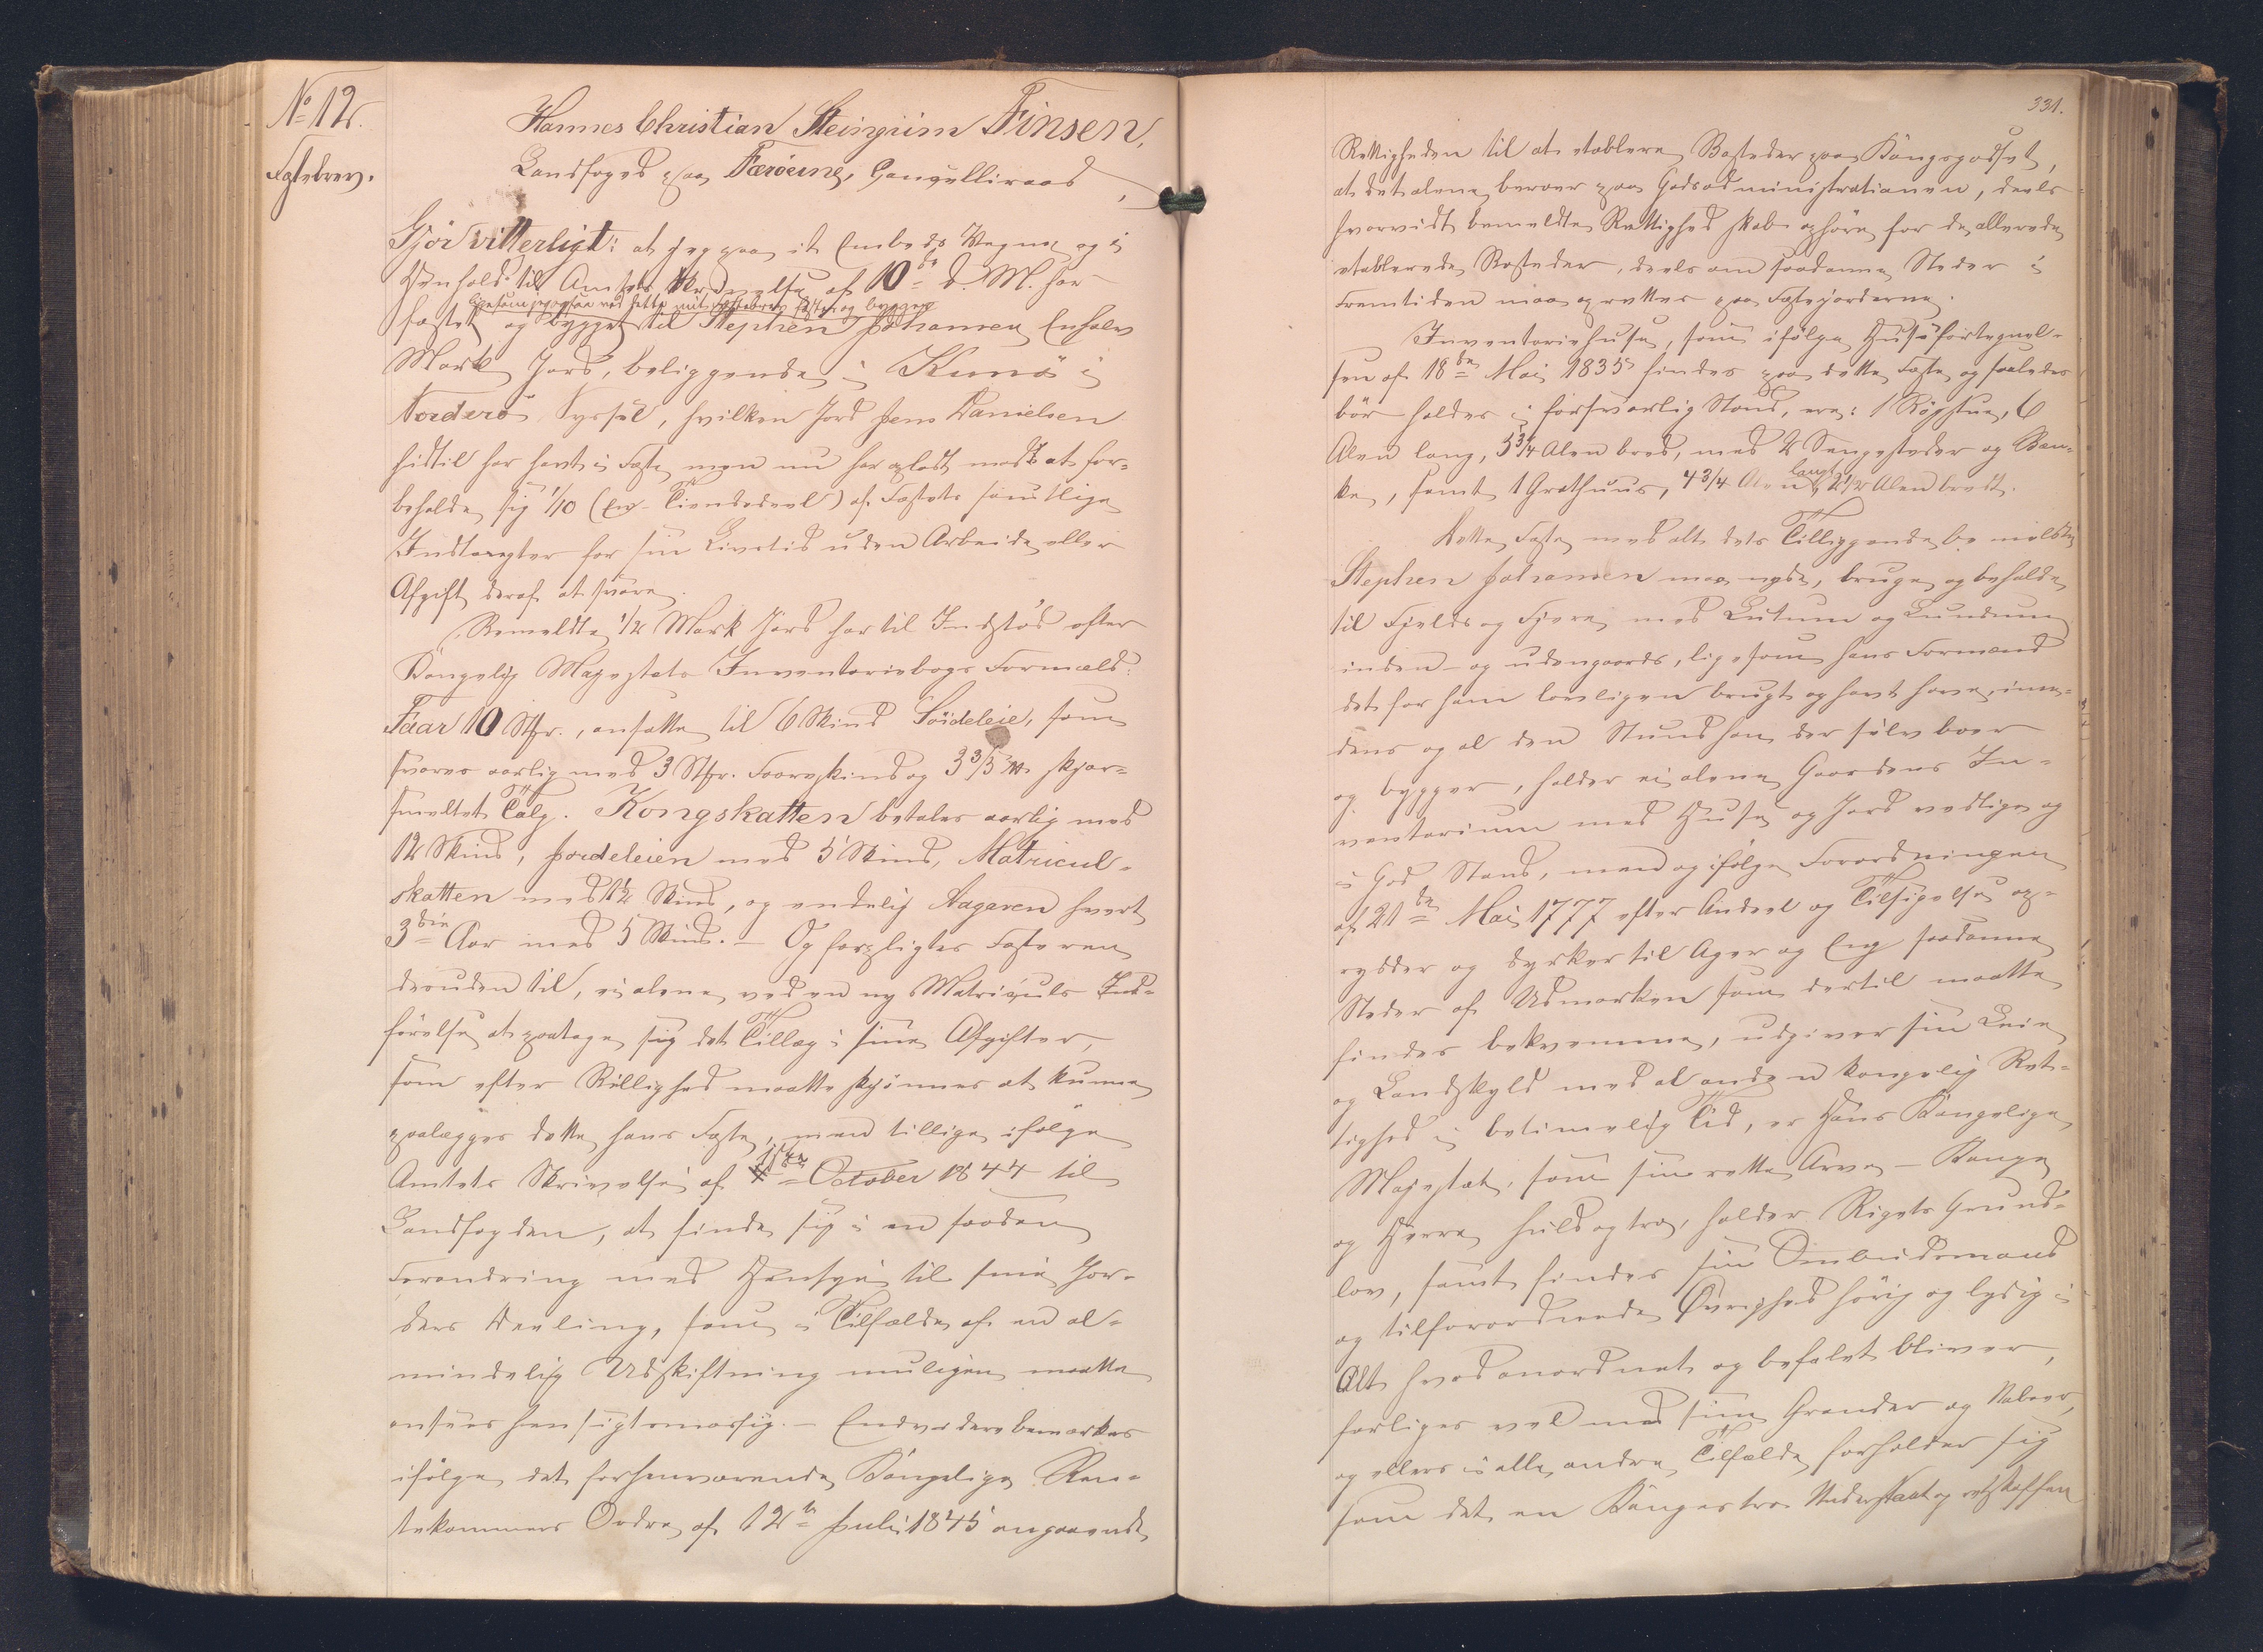 No 12.
Fæstebrev.
Hannes Christian Steingrim Finsen,
Landfoged paa Færöerne, Cancelliraad,
Gjör vitterligt: at jeg paa it Embeds Vegne og i
Henhold til Amtets Skrivelse af 10de d. M. har
ligesom jeg ogsaa ved dette mit Fæstebrev fæster og bygger
fæstet og bygget til Stephen Johansen En halv
Mark Jord, beliggende i Kunö i
Norderö Syssel, hvilken Jord Jens Danielsen
hidtil har havt i Fæste men nu har opladt mod at for-
beholde sig 1/10 (En Tiendedeel) af Fæstets samtlige
Indtægter for sin Livstid uden Arbeide eller
Afgift deraf at svare.
Bemeldte 1/2 Mark Jord har til Indstöd efter
Kongelig Majestæts Inventariebogs Formæld:
Faar 10 Stkr., ansatte til 6 Skind Söideleie, som
svares aarlig med 3 Stkr. Faareskind og 3 3/5 ℔ skjær-
smeltet Talg. Kongskatten betales aarlig med
12 Skind, Jordeleien med 5 Skind, Matricul-
skatten med 1 1/2 Skind, og endelig Aagaven hvert
3die Aar med 5 Skind. — Og forpligtes Fæsteren
desuden til, ei alene ved en ny Matriculs Ind-
förelse at paatage sig det Tillæg i sine Afgifter,
som efter Billighed maatte skjönnes at kunne
paalægges dette hans Fæste, men tillige ifölge
Amtets Skrivelse af 11te October 1844 til
Landfogden, at finde sig i en saadan
Forandring med Hensyn til sine Jor-
ders Deeling, som i Tilfælde af en al-
mindelig Udskiftning muligen maatte
ansees hensigtsmæssig. — Endvidere bemærkes
ifölge det forhenværende Kongelige Ren-
tekammers Ordre af 12te Juli 1845 angaaende
331.
Rettigheden til at etablere Bosteder paa Kongsgodset,
at det alene beroer paa Godsadministrationen, deels
hvorvidt bemeldte Rettighed skal ophöre for de allerede
etablerede Bosteder, deels om saadanne Steder i
Fremtiden maa oprettes paa Fæstejorderne.
Inventariehuse, som ifölge Huusfortegnel-
sen af 18de Mai 1835 findes paa dette Fæste og saaledes
bör holdes i forsvarlig Stand, ere: 1 Rögstue, 6
Alen lang, 5 3/4 Alen bred, med 2 Sengesteder og Bæn-
ke, samt 1 Grothuus, 4 3/4 Alen langt, 2 1/2 Alen bredt.
Dette Fæste med alt dets Tilliggende be meldte
Stephen Johansen maa nyde, bruge og beholde
til Fjelds og Fjære, med Lutum og Lundum
inden- og udengaards, ligesom hans Formænd
det for ham lovligen brugt og havt have, imi-
dens og al den Stund han der selv boer
og bygger, holder ei alene Gaardens In-
ventarium med Huse og Jord vedlige og
i god Stand, men og ifölge Forordningen
af 21de Mai 1777 efter Andeel og Tilsigelse op-
rydder og dyrker til Ager og Eng saadanne
Steder af Udmarken som dertil maatte
findes bekvemme, udgiver sin Leie
og Landskyld med al anden kongelig Ret-
tighed i betimelig Tid, er Hans Kongelige
Majestæt, som sin rette Arve-Konge
og Herre huld og tro, holder Rigets Grund-
lov, samt findes sin Ombudsmand
og tilforordnede Övrighed hörig og lydig i
Alt hvad anordnet og befalet bliver,
forliges vel med sine Grander og Naboer,
og ellers i alle andre Tilfælde forholder sig
som det en Kongens tro Undersaat og retskaffen